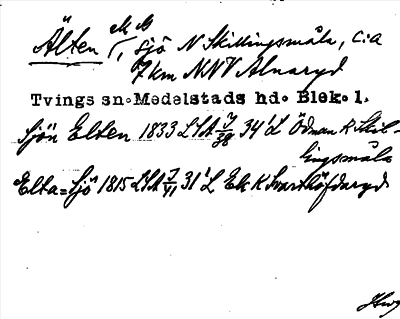 Älten 1, sjö N Skillingsmåla, c:a
7 km NNV Alnaryd
Tvings sn. Medelstads hd. Blek. l.
Sjön Elten 1833 LSA J/38 34 L Ödman K Skil-
lingsmåla
Elta=Sjö 1815 LSA J/41 31 L Ek K Svarthöfdaryd